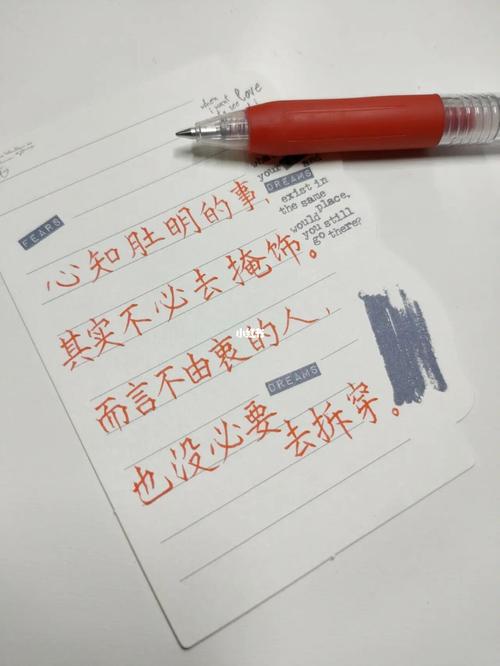 when
i want
to see
love
your
DREAMS
exist in
the same
place,
would
you still
go there?
FEARS
心知肚明的事,
其实不必去掩饰。
小红书
而言不由衷的人,
DREAMS
也没必要去拆穿。